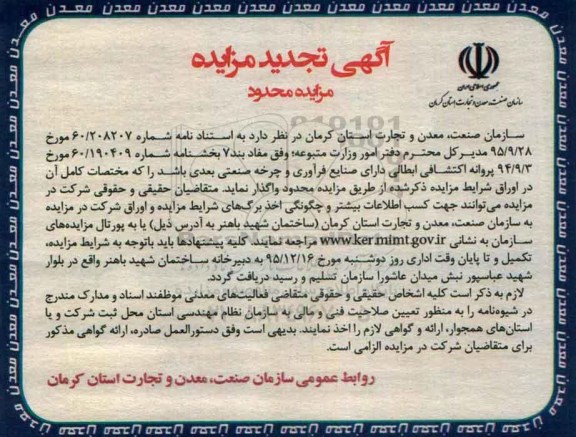 آگهی تجدید مزایده
مزایده محدود
جمهوری اسلامی ایران
سازمان صنعت، معدن و تجارت استان کرمان
سازمان صنعت، معدن و تجارت استان کرمان در نظر دارد به استناد نامه شماره ۶۰/۲۰۸۲۰۷ مورخ
۹۵/۹/۲۸ مدیر کل محترم دفتر امور وزارت متبوعه؛ وفق مفاد بند۷ بخشنامه شماره ۶۰/۱۹۰۴۰۹ مورخ
۹۴/۹/۳ پروانه اکتشافی ابطالی دارای صنایع فرآوری و چرخه صنعتی بعدی باشد را که مختصات کامل آن
در اوراق شرایط مزایده ذکرشده از طریق مزایده محدود واگذار نماید. متقاضیان حقیقی و حقوقی شرکت در
مزایده می‌توانند جهت کسب اطلاعات بیشتر و چگونگی اخذ برگ‌های شرایط مزایده و اوراق شرکت در مزایده
به سازمان صنعت، معدن و تجارت استان کرمان (ساختمان شهید باهنر به آدرس ذیل) یا به پورتال مزایده‌های
سازمان به نشانی www.ker.mimt.gov.ir مراجعه نمایند. کلیه پیشنهادها باید باتوجه به شرایط مزایده،
تکمیل و تا پایان وقت اداری روز دوشنبه مورخ ۹۵/۱۲/۱۶ به دبیرخانه ساختمان شهید باهنر واقع در بلوار
شهید عباسپور نبش میدان عاشورا سازمان تسلیم و رسید دریافت گردد.
لازم به ذکر است کلیه اشخاص حقیقی و حقوقی متقاضی فعالیت‌های معدنی موظفند اسناد و مدارک مندرج
در شیوه‌نامه را به منظور تعیین صلاحیت فنی و مالی به سازمان نظام مهندسی استان محل ثبت شرکت و یا
استان‌های همجوار، ارائه و گواهی لازم را اخذ نمایند. بدیهی است وفق دستورالعمل صادره، ارائه گواهی مذکور
برای متقاضیان شرکت در مزایده الزامی است.
روابط عمومی سازمان صنعت، معدن و تجارت استان کرمان